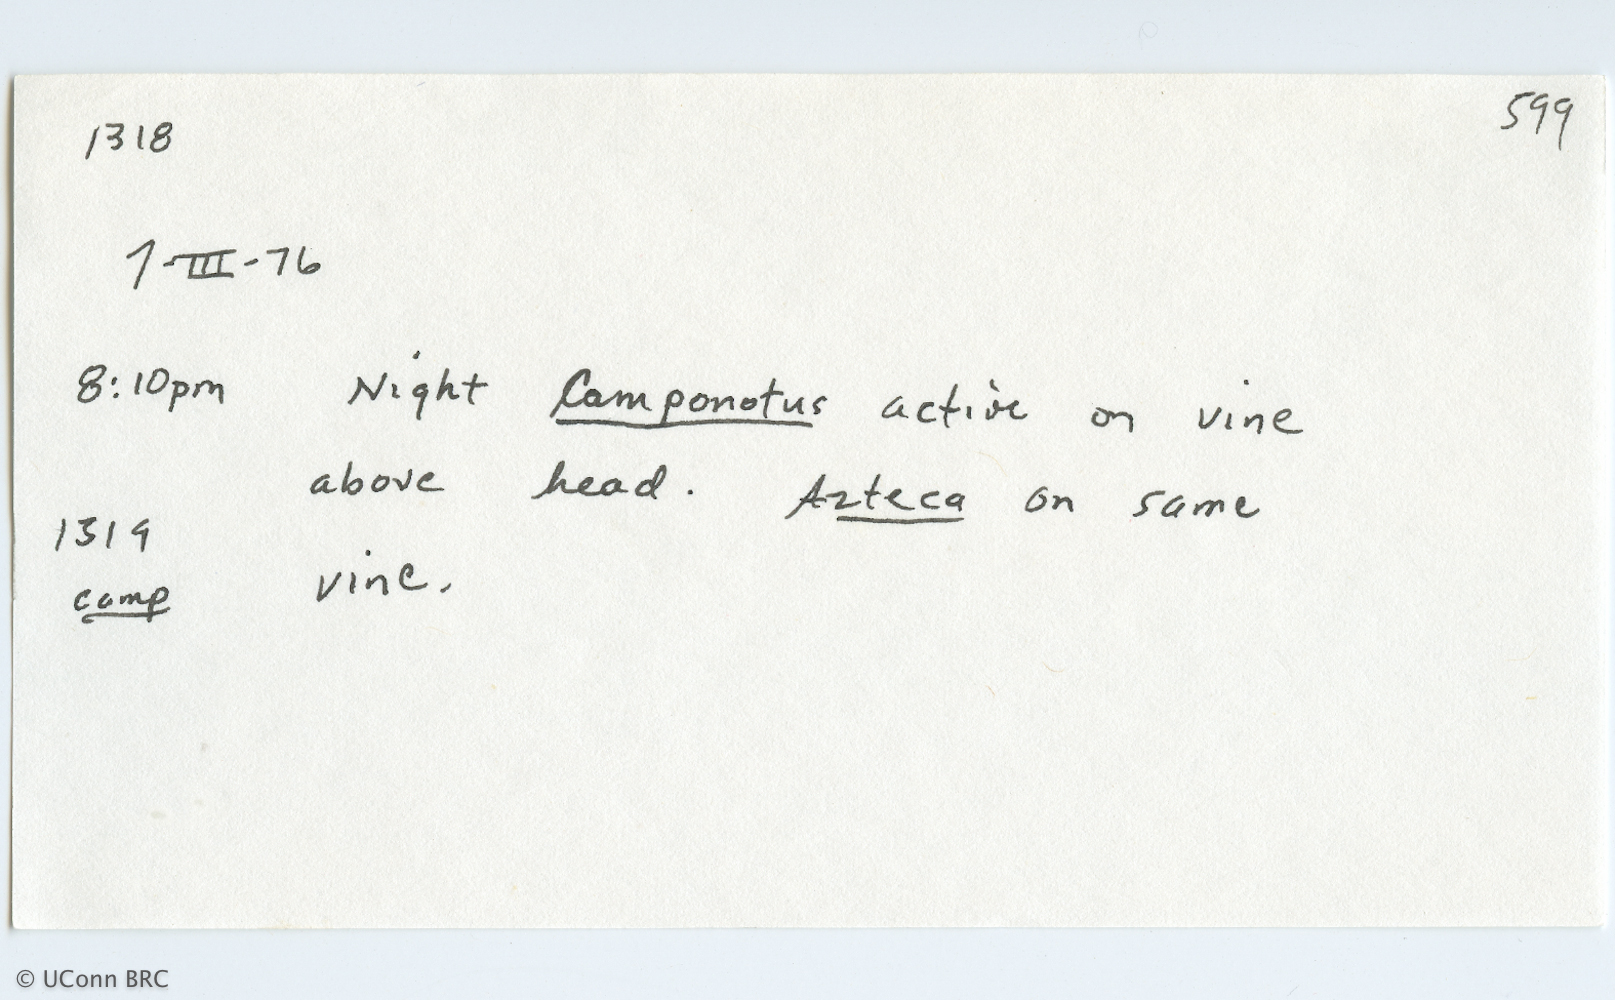 1318
599
7-III-76
8:10pm Night Camponotus active on vine
above head. Azteca on same
1319
camp vine.
© UConn BRC